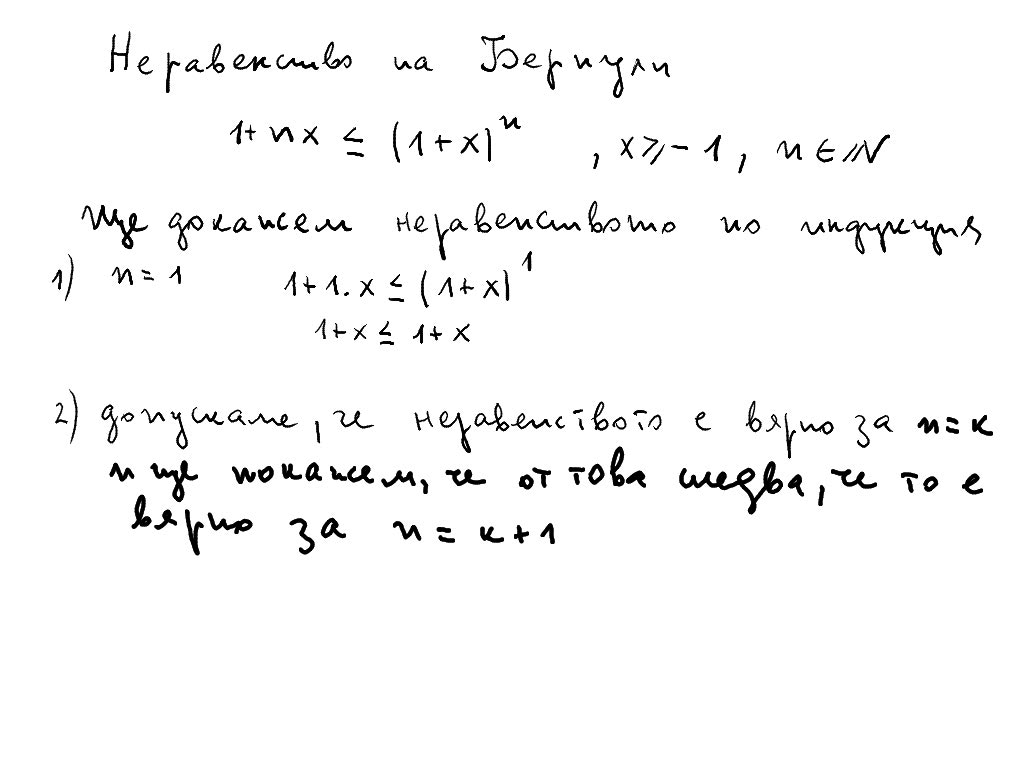 Неравенство на Бернули
1+nx ≤ (1+x)^n , x ≥ -1, n ∈ ℕ
Ще докажем неравенството по индукция
1) n = 1 1+1.x ≤ (1+x)^1
1+x ≤ 1+x
2) допускаме, че неравенството е вярно за n=k
и ще покажем, че от това следва, че то е
вярно за n = k+1